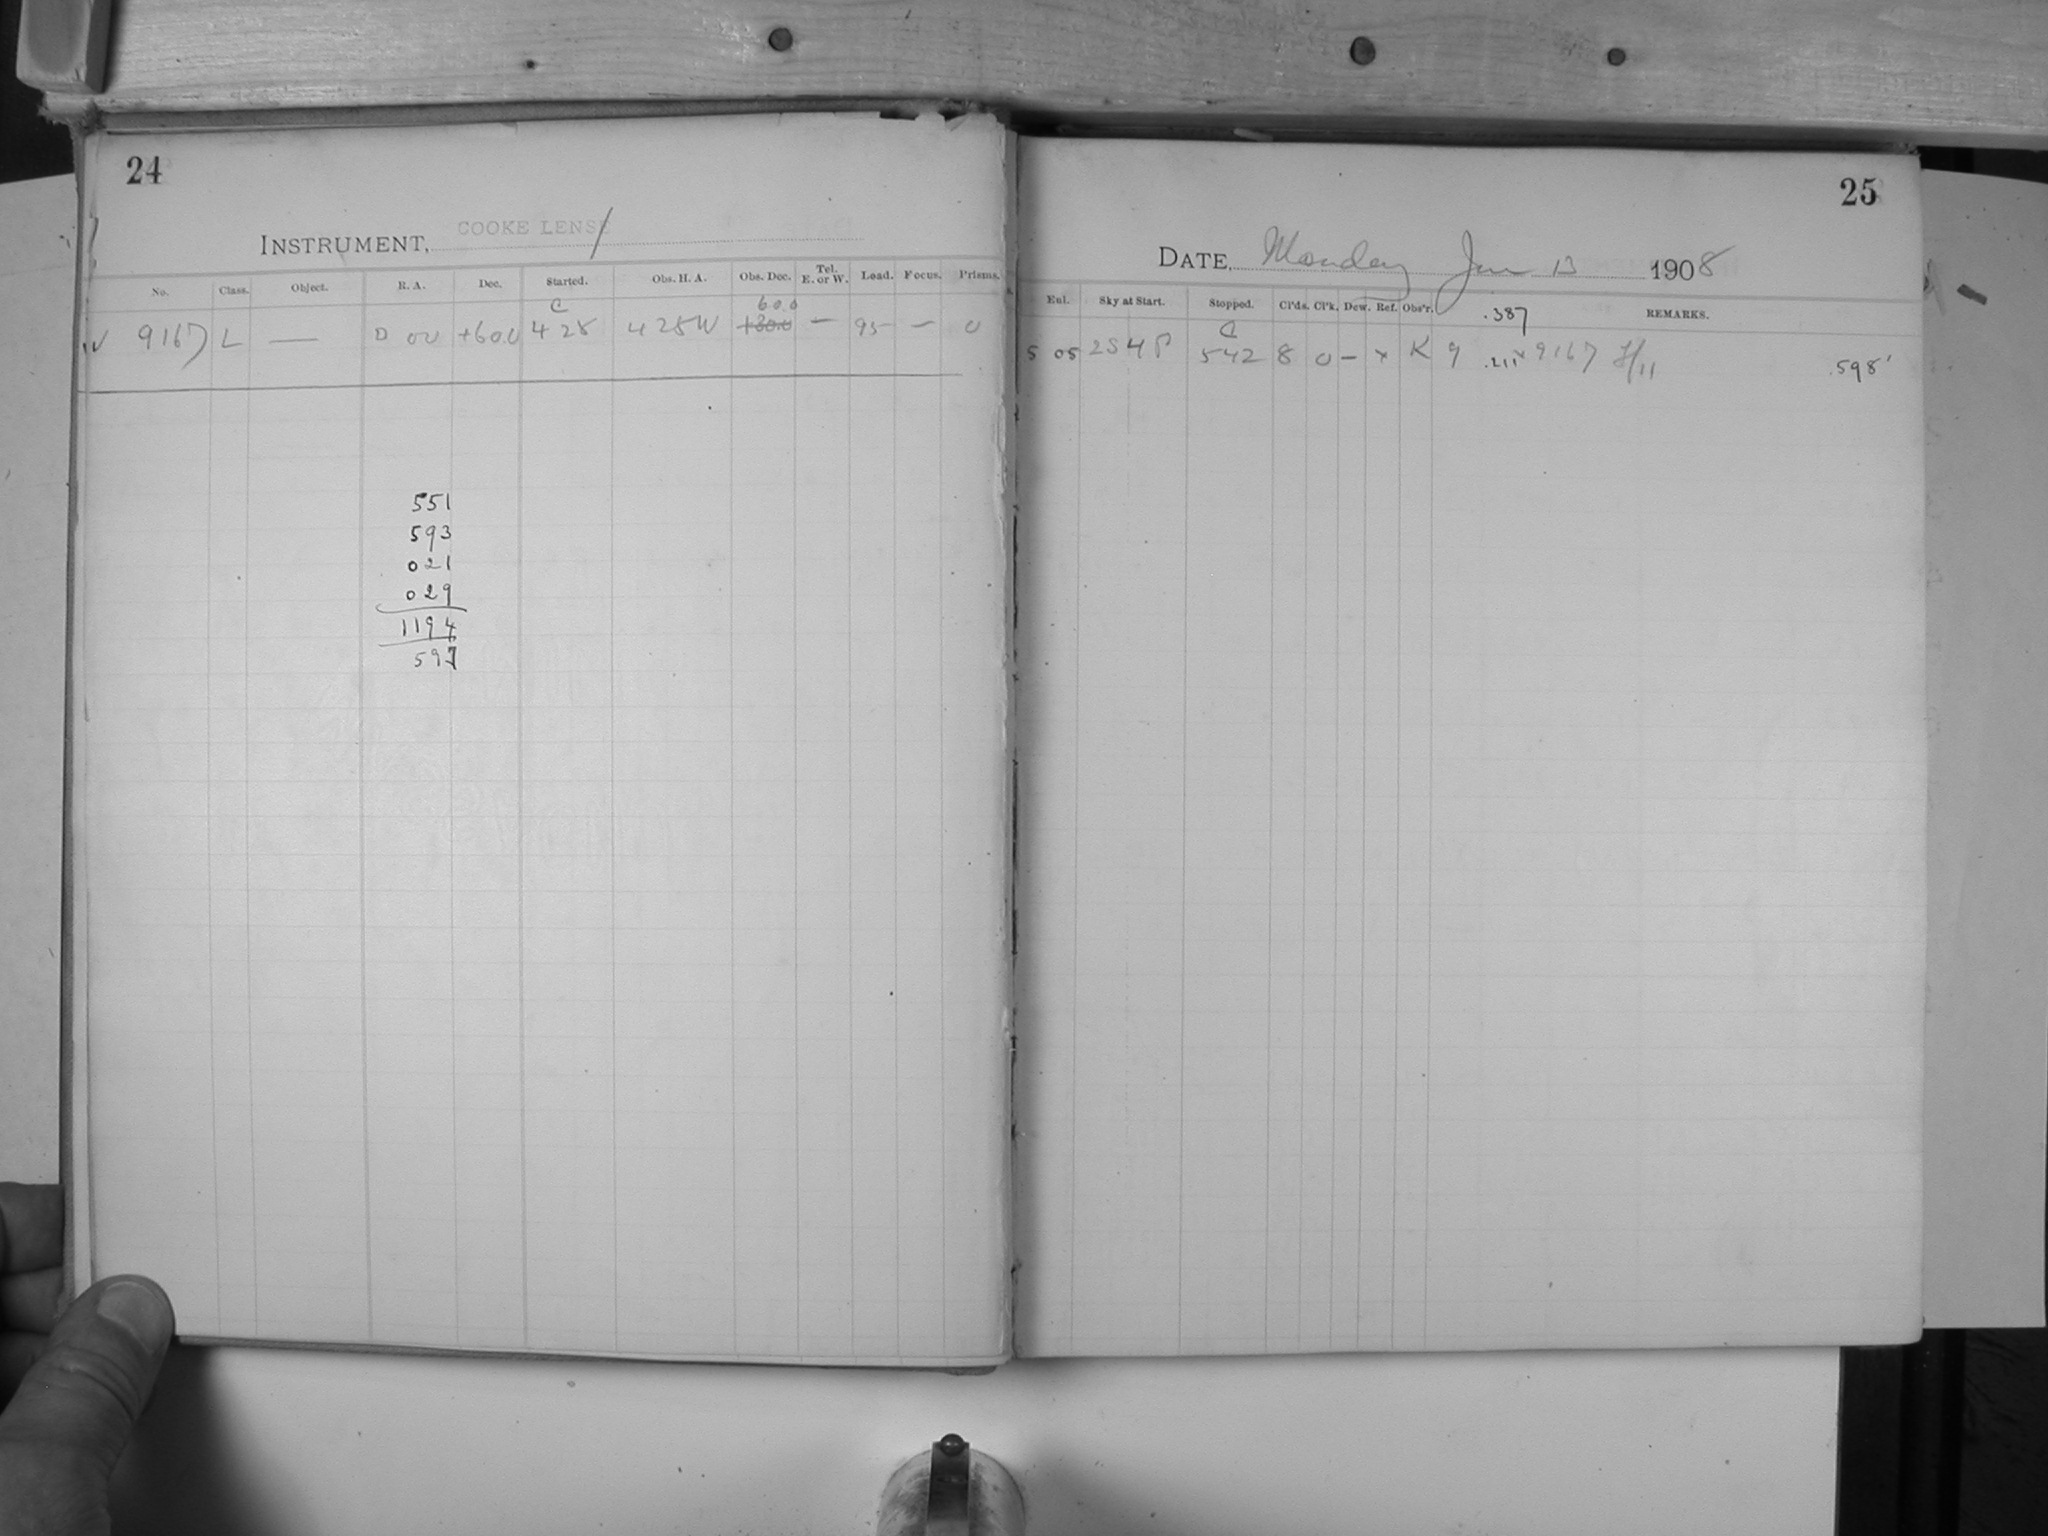 24
INSTRUMENT, COOKE LENSE
No. Class. Object. R. A. Dec. Started. Obs. H. A. Obs. Dec. Tel. E. or W. Lead. Focus. Prisms.
C 60.0
9167 L — 0 00 +60.0 4 28 4 28W +30.0 — 95 — 0
551
593
021
029
1194
597
25
DATE, Monday Jan 13 1908
Enl. Sky at Start. Stopped. Cl'ds. Cl'k. Dew. Ref. Obs'r. REMARKS.
.387
C
5 05 2S4P 542 8 0 — x K 9 .211 x 9167 F/11 .598'